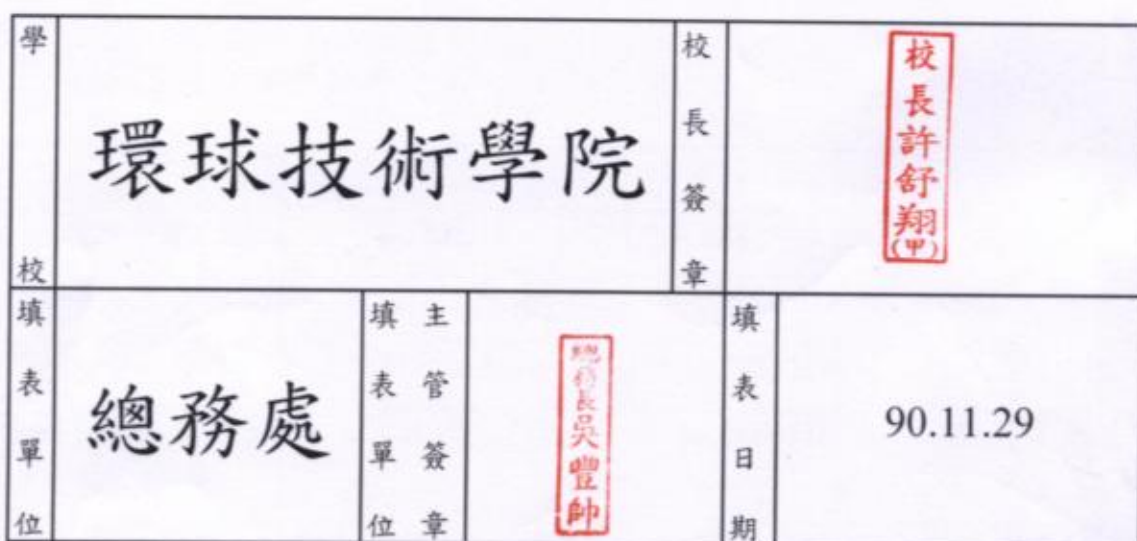 學校
環球技術學院
校長簽章
校長許舒翔(甲)
填表單位
總務處
填表單位主管簽章
總務長吳豐帥
填表日期
90.11.29